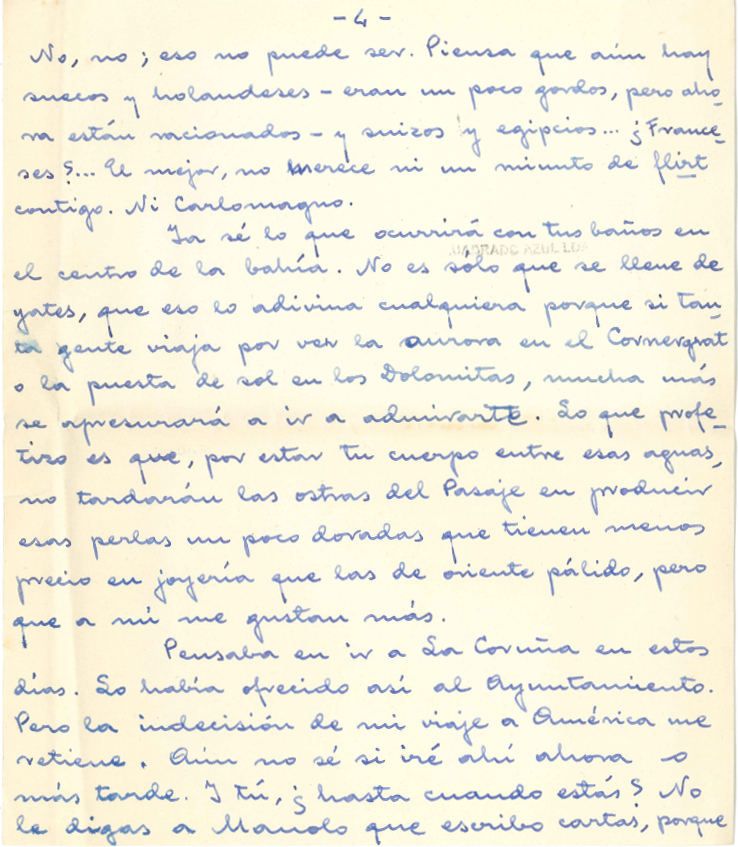 - 4 -
No, no; eso no puede ser. Piensa que aún hay
suecos y holandeses - eran un poco gordos, pero aho-
ra están racionados - y suizos y egipcios... ¿France-
ses?... El mejor, no merece ni un minuto de flirt
contigo. Ni Carlomagno.
Ya sé lo que ocurrirá con tus baños en
CUADRADO AZUL LDA
el centro de la bahía. No es sólo que se llene de
yates, que eso lo adivina cualquiera porque si tan-
ta gente viaja por ver la aurora en el Cornergrat
o la puesta de sol en los Dolomitas, mucha más
se apresurará a ir a admirarte. Lo que profe-
tizo es que, por estar tu cuerpo entre esas aguas,
no tardarán las ostras del Pasaje en producir
esas perlas un poco doradas que tienen menos
precio en joyería que las de oriente pálido, pero
que a mí me gustan más.
Pensaba en ir a La Coruña en estos
días. Lo había ofrecido así al Ayuntamiento.
Pero la indecisión de mi viaje a América me
retiene. Aún no sé si iré ahí ahora o
más tarde. Y tú, ¿hasta cuando estás? No
le digas a Manolo que escribo cartas, porque